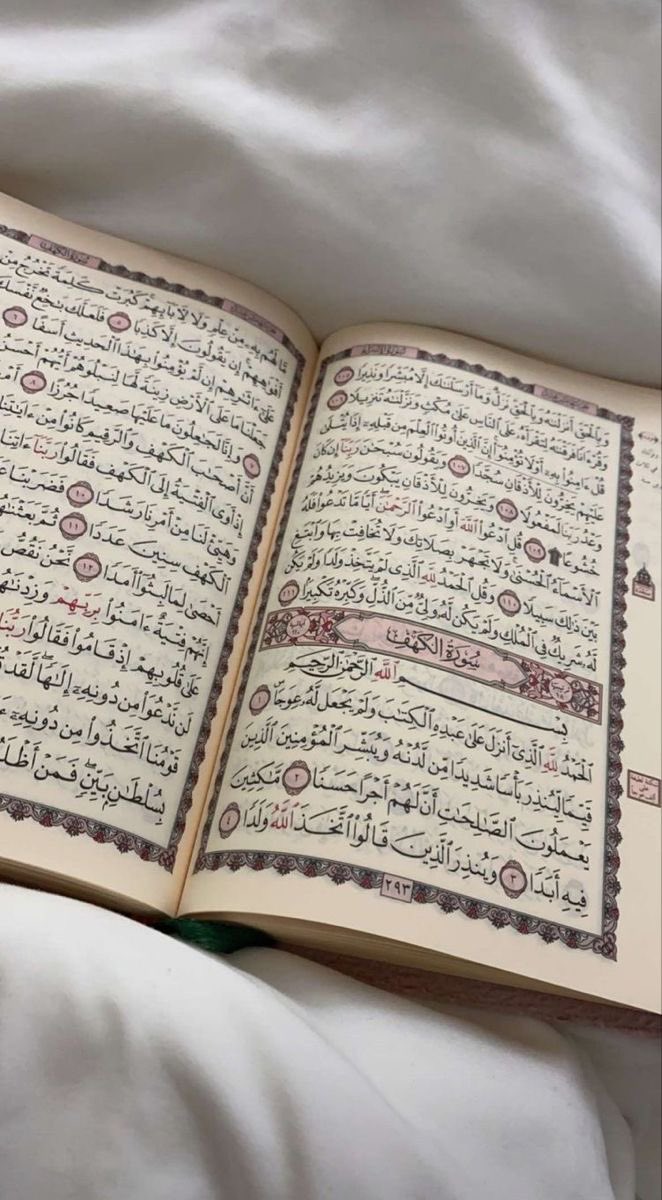 سُورَةُ الإِسْرَاءِ
وَبِٱلْحَقِّ أَنزَلْنَٰهُ وَبِٱلْحَقِّ نَزَلَ وَمَآ أَرْسَلْنَٰكَ إِلَّا مُبَشِّرًا وَنَذِيرًا ١٠٥
وَقُرْءَانًا فَرَقْنَٰهُ لِتَقْرَأَهُۥ عَلَى ٱلنَّاسِ عَلَىٰ مُكْثٍ وَنَزَّلْنَٰهُ تَنزِيلًا ١٠٦
قُلْ ءَامِنُوا۟ بِهِۦٓ أَوْ لَا تُؤْمِنُوٓا۟ إِنَّ ٱلَّذِينَ أُوتُوا۟ ٱلْعِلْمَ مِن قَبْلِهِۦٓ إِذَا يُتْلَىٰ
عَلَيْهِمْ يَخِرُّونَ لِلْأَذْقَانِ سُجَّدًا ١٠٧ وَيَقُولُونَ سُبْحَٰنَ رَبِّنَآ إِن كَانَ
وَعْدُ رَبِّنَا لَمَفْعُولًا ١٠٨ وَيَخِرُّونَ لِلْأَذْقَانِ يَبْكُونَ وَيَزِيدُهُمْ
خُشُوعًا ١٠٩ قُلِ ٱدْعُوا۟ ٱللَّهَ أَوِ ٱدْعُوا۟ ٱلرَّحْمَٰنَ أَيًّا مَّا تَدْعُوا۟ فَلَهُ
ٱلْأَسْمَآءُ ٱلْحُسْنَىٰ وَلَا تَجْهَرْ بِصَلَاتِكَ وَلَا تُخَافِتْ بِهَا وَٱبْتَغِ
بَيْنَ ذَٰلِكَ سَبِيلًا ١١٠ وَقُلِ ٱلْحَمْدُ لِلَّهِ ٱلَّذِى لَمْ يَتَّخِذْ وَلَدًا وَلَمْ يَكُن
لَّهُۥ شَرِيكٌ فِى ٱلْمُلْكِ وَلَمْ يَكُن لَّهُۥ وَلِىٌّ مِّنَ ٱلذُّلِّ وَكَبِّرْهُ تَكْبِيرًا ١١١
سُورَةُ الكَهْفِ
بِسْمِ ٱللَّهِ ٱلرَّحْمَٰنِ ٱلرَّحِيمِ
ٱلْحَمْدُ لِلَّهِ ٱلَّذِىٓ أَنزَلَ عَلَىٰ عَبْدِهِ ٱلْكِتَٰبَ وَلَمْ يَجْعَل لَّهُۥ عِوَجَا ١
قَيِّمًا لِّيُنذِرَ بَأْسًا شَدِيدًا مِّن لَّدُنْهُ وَيُبَشِّرَ ٱلْمُؤْمِنِينَ ٱلَّذِينَ
يَعْمَلُونَ ٱلصَّٰلِحَٰتِ أَنَّ لَهُمْ أَجْرًا حَسَنًا ٢ مَّٰكِثِينَ
فِيهِ أَبَدًا ٣ وَيُنذِرَ ٱلَّذِينَ قَالُوا۟ ٱتَّخَذَ ٱللَّهُ وَلَدًا ٤
٢٩٣
سُورَةُ الكَهْفِ
مَّا لَهُم بِهِۦ مِنْ عِلْمٍ وَلَا لِءَابَآئِهِمْ كَبُرَتْ كَلِمَةً تَخْرُجُ مِنْ
أَفْوَٰهِهِمْ إِن يَقُولُونَ إِلَّا كَذِبًا ٥ فَلَعَلَّكَ بَٰخِعٌ نَّفْسَكَ
عَلَىٰٓ ءَاثَٰرِهِمْ إِن لَّمْ يُؤْمِنُوا۟ بِهَٰذَا ٱلْحَدِيثِ أَسَفًا ٦
جَعَلْنَا مَا عَلَى ٱلْأَرْضِ زِينَةً لَّهَا لِنَبْلُوَهُمْ أَيُّهُمْ أَحْسَنُ
٧ وَإِنَّا لَجَٰعِلُونَ مَا عَلَيْهَا صَعِيدًا جُرُزًا ٨ أَمْ
أَنَّ أَصْحَٰبَ ٱلْكَهْفِ وَٱلرَّقِيمِ كَانُوا۟ مِنْ ءَايَٰتِنَا
إِذْ أَوَى ٱلْفِتْيَةُ إِلَى ٱلْكَهْفِ فَقَالُوا۟ رَبَّنَآ ءَاتِنَا
وَهَيِّئْ لَنَا مِنْ أَمْرِنَا رَشَدًا ١٠ فَضَرَبْنَا
ٱلْكَهْفِ سِنِينَ عَدَدًا ١١ ثُمَّ بَعَثْنَٰهُ
أَحْصَىٰ لِمَا لَبِثُوٓا۟ أَمَدًا ١٢ نَّحْنُ نَقُصُّ
إِنَّهُمْ فِتْيَةٌ ءَامَنُوا۟ بِرَبِّهِمْ وَزِدْنَٰهُ
عَلَىٰ قُلُوبِهِمْ إِذْ قَامُوا۟ فَقَالُوا۟ رَبُّنَا
لَن نَّدْعُوَا۟ مِن دُونِهِۦٓ إِلَٰهًا لَّقَدْ
قَوْمُنَا ٱتَّخَذُوا۟ مِن دُونِهِۦٓ
بِسُلْطَٰنٍ بَيِّنٍ فَمَنْ أَظْلَ